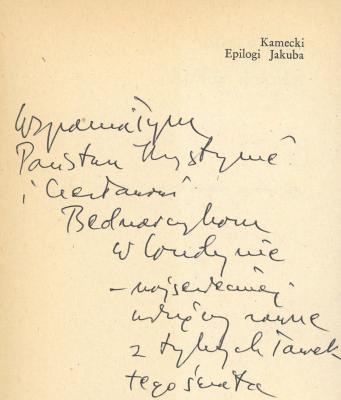 Kamecki
Epilogi Jakuba
Wspaniałym
Państwu Krystynie
i Czesławowi
Bednarczykom
w Londynie
– najserdeczniej
z tylnych ławek
tego świata